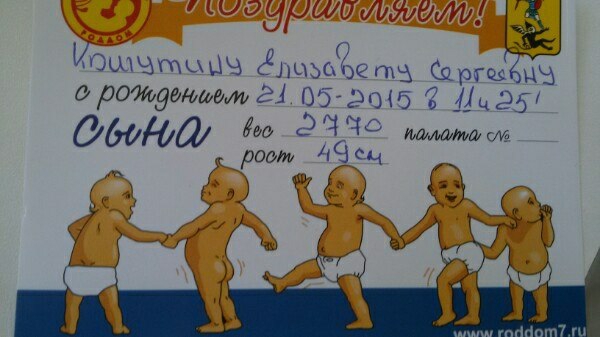 РОДДОМ
Поздравляем!
Кошутину Елизавету Сергеевну
с рождением 21.05-2015 в 11ч25'
сына вес 2770 палата №
рост 49см
www.roddom7.ru